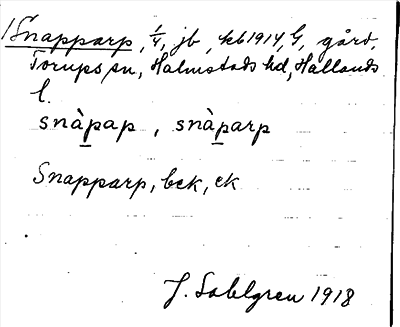 1 Snapparp, 1/4, jb, kb 1914, G, gård,
Torups sn, Halmstads hd, Hallands
l.
snàpap, snàparp
Snapparp, bck, ck
J. Sahlgren 1918